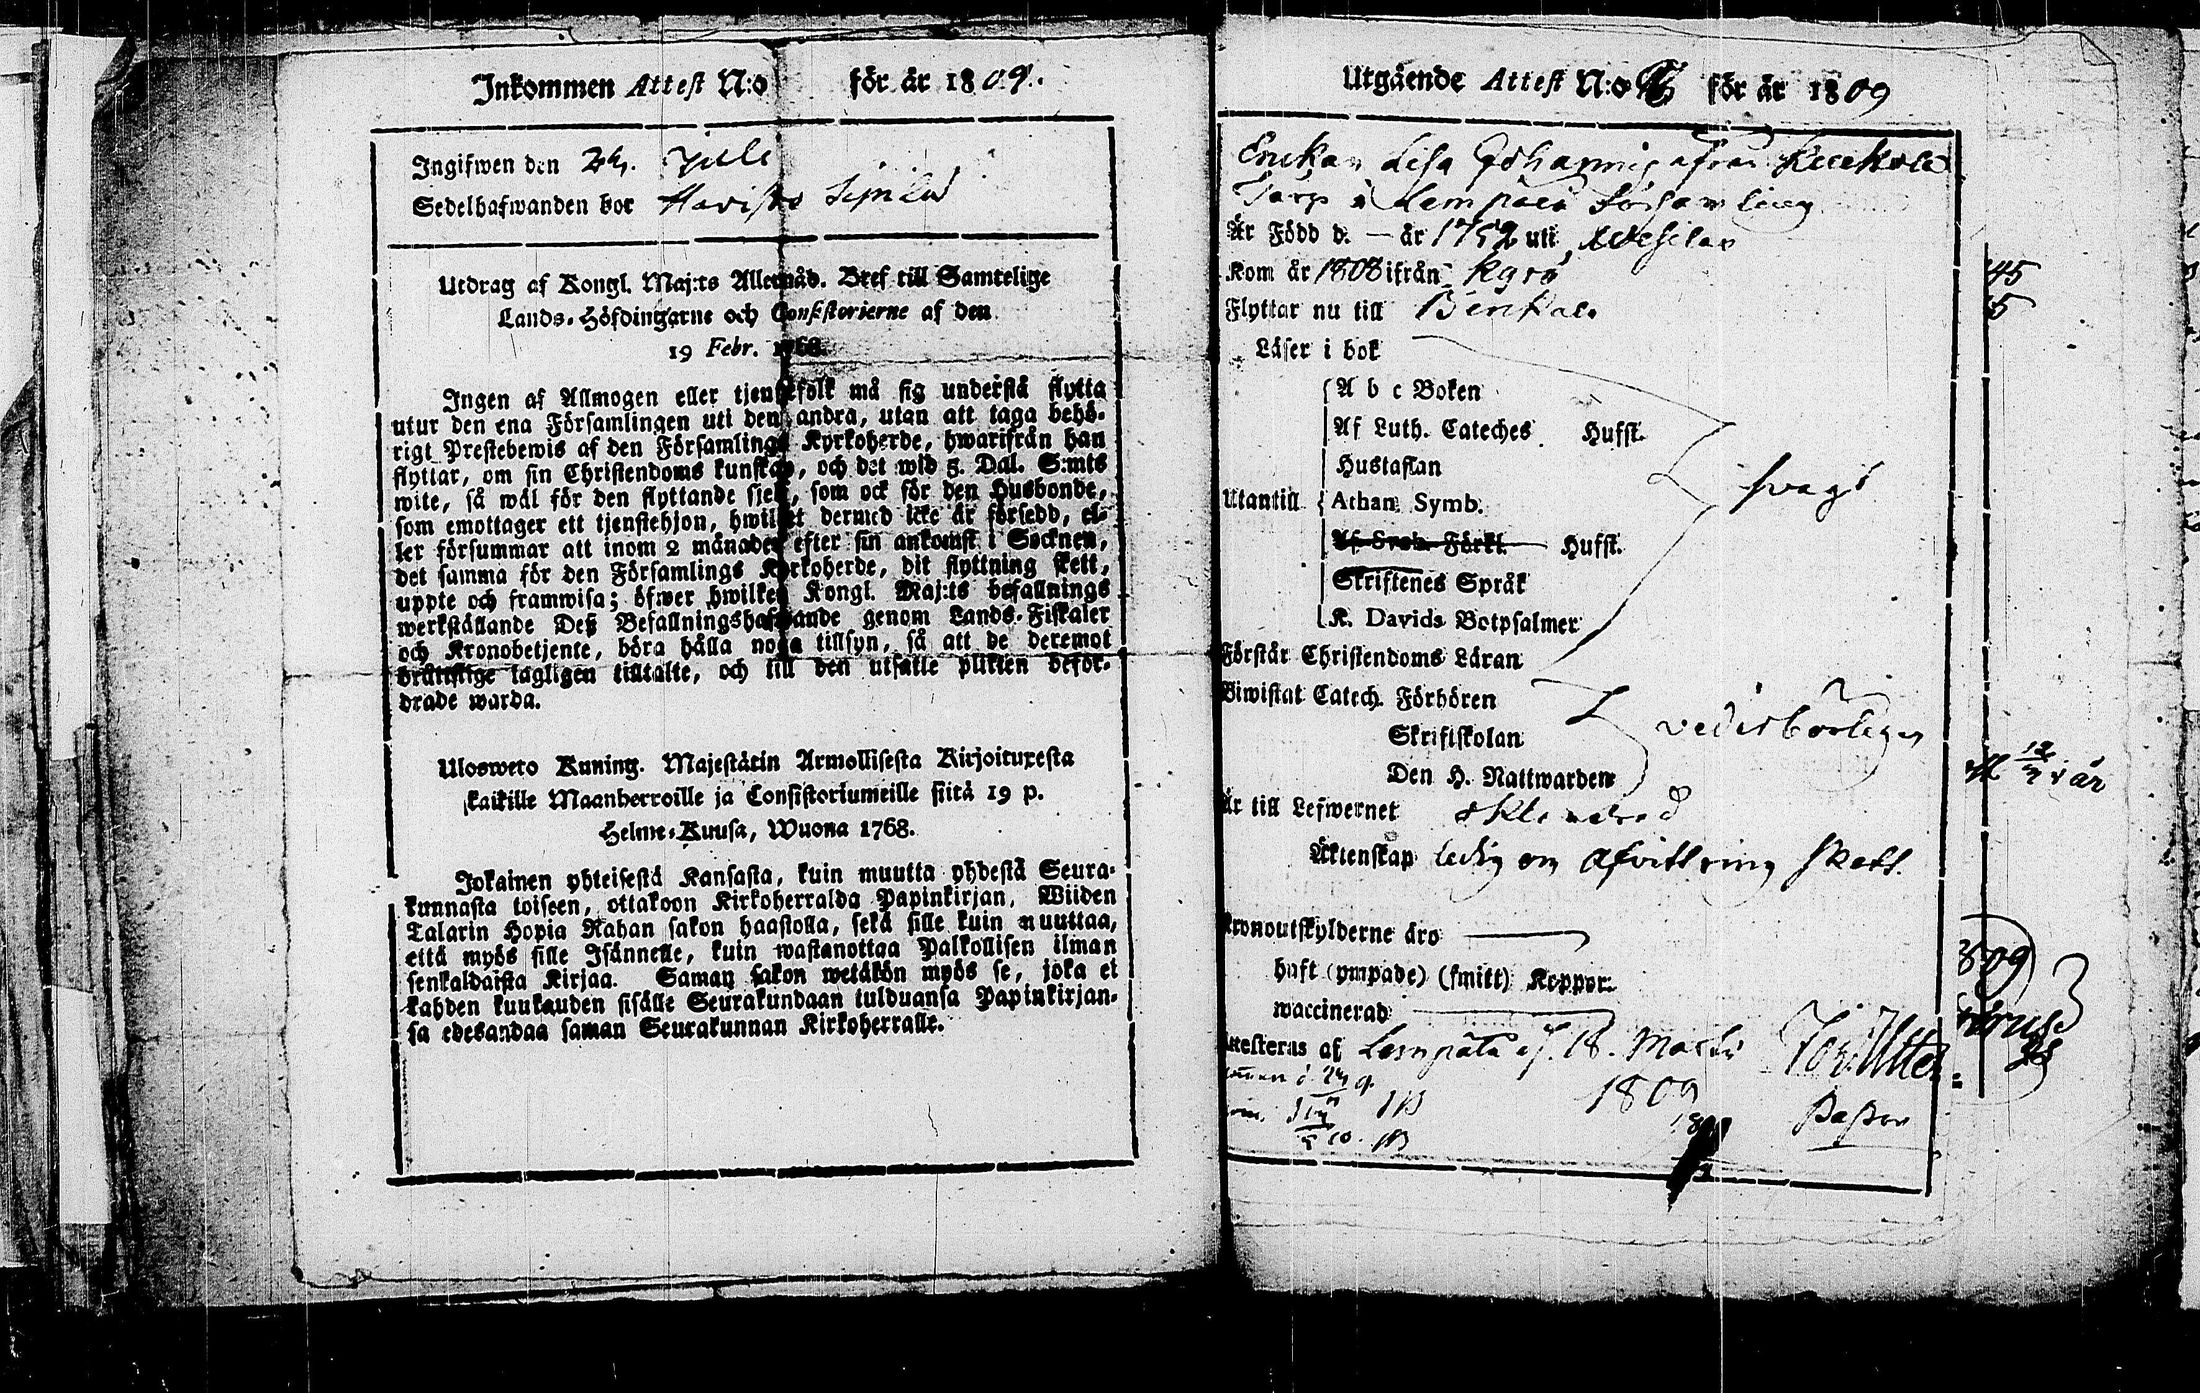 Inkommen Attest N:o för år 1809.
Ingifwen den 24. Juli
Sedelhafwanden bor
Utdrag af Kongl. Maj:ts Allernåd. Bref till Samtelige
Lands-Höfdingarne och Consistorierne af den
19 Febr. 1768.
Ingen af Allmogen eller tjenstefolk må sig understå flytta
utur den ena Församlingen uti den andra, utan att taga behö-
rigt Prestebewis af den Församlings Kyrkoherde, hwarifrån han
flyttar, om sin Christendoms kunskap, och det wid 5. Dal. S:mts
wite, så wäl för den flyttande sjelf, som ock för den Husbonde,
som emottager ett tjenstehjon, hwilket dermed icke är försedd, el-
ler försummar att inom 2 månader efter sin ankomst i Socknen,
det samma för den Församlings Kyrkoherde, dit flyttning skett,
uppte och framwisa; öfwer hwilken Kongl. Maj:ts befallnings
werkställande Deß Befallningshafwande genom Lands-Fiskaler
och Kronobetjente, böra hålla noga tillsyn, så att de deremot
bråttslige lagligen tilltalte, och till den utsatte plikten beför-
drade warda.
Ulosweto Kuning. Majestätin Armollisesta Kirjoituxesta
kaikille Maanherroille ja Consistoriumeille siitä 19 p.
Helme-Kuusa, Wuona 1768.
Jokainen yhteisestä Kansasta, kuin muutta yhdestä Seura-
kunnasta toiseen, ottakoon Kirkoherralda Papinkirjan, Wiiden
Talarin Hopia Rahan sakon haastolla, sekä sille kuin muuttaa,
että myös sille Isännelle, kuin wastanottaa Palkollisen ilman
senkaldaista Kirjaa. Saman sakon wetäkön myös se, joka ei
kahden kuukauden sisälle Seurakundaan tulduansa Papinkirjan-
sa edesandaa saman Seurakunnan Kirkoherralle.
Utgående Attest N:o för år 1809
Enkan Lisa Johannis afrån
Torp i Lempälä Församling
Är Född d. — år 1752 uti
Kom år 1808 ifrån
45
Flyttar nu till
5
Läser i bok
A b c Boken
Af Luth. Cateches Hufst.
Hustaflan
Utantill Athan. Symb. swagt
Af Sveb. Förkl. Hufst.
Skriftenes Språk
K. Davids Botpsalmer
Förstår Christendoms Läran
Biwistat Catech. Förhören
Skriftskolan
Den H. Nattwarden
Är till Lefwernet oklandrad
Äktenskap ledig om afvittring skett.
Kronoutskylderne äro
haft (ympade) (smitt) Koppor.
waccinerad
Attesteras af Lempälä d. 18. Martii
1809
Pastor